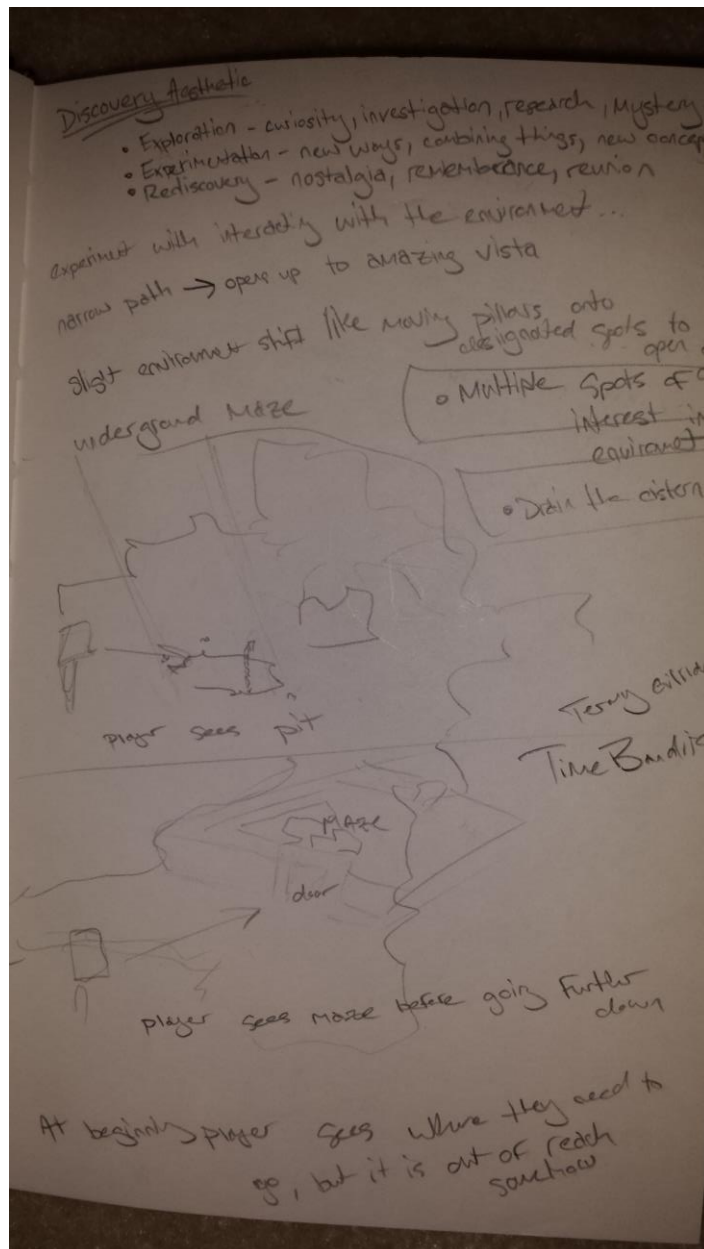 Discovery Aesthetic
• Exploration - curiosity, investigation, research, Mystery
• Experimentation - new ways, combining things, new concep
• Rediscovery - nostalgia, remembearance, reunion
experiment with interacting with the environment...
narrow path → opens up to amazing vista
slight environment shift like moving pillars onto
designated spots to
open
• Multiple spots of
interest in
environment
• Drain the cistern
underground Maze
player sees pit
Terry
Time Bandits
MAZE
door
player sees maze before going further
down
At beginning player sees where they need to
go, but it is out of reach
somehow